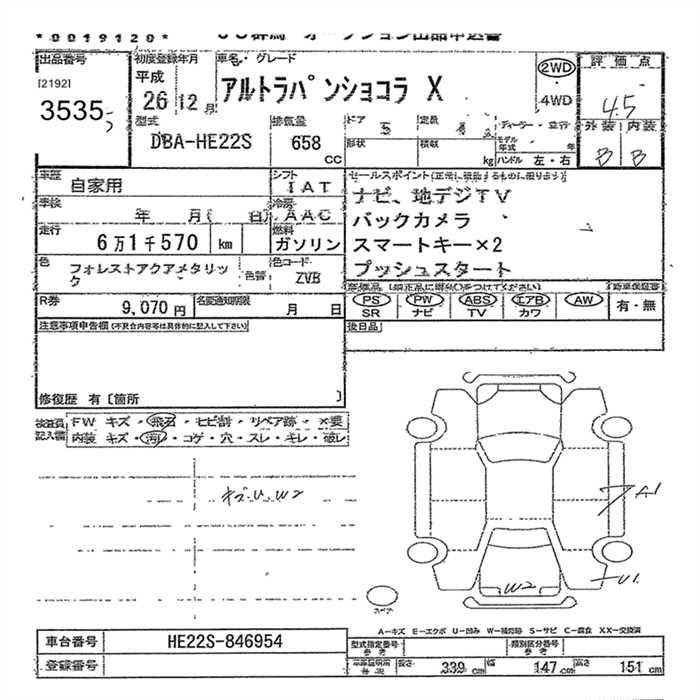 *0019120*
JU群馬 オークション出品申込書
出品番号
[2192]
3535
初度登録年月
平成
26 12月
車名・グレード
アルトラパンショコラ X
2WD
4WD
評価点
4.5
外装 内装
B B
型式
DBA-HE22S
排気量
658
CC
ドア
5
定員
形状
積載
kg
ハンドル 左・右
車歴
自家用
シフト
IAT
車検
年 月( 日)
冷房
AAC
走行
6万1千570 km
燃料
ガソリン
色
フォレストアクアメタリック
色替
色コード
ZVB
R券
9,070円
名変通知期限
月 日
セールスポイント
ナビ、地デジTV
バックカメラ
スマートキー×2
プッシュスタート
PS PW ABS エアB AW
SR ナビ TV カワ
有・無
後日品
注意事項申告欄(不具合内容等は具体的に記入して下さい)
修復歴 有〔箇所 〕
検査員記入欄
FW キズ・飛石・ヒビ割・リペア跡・×要
内装 キズ・汚れ・コゲ・穴・スレ・キレ・破レ
キズ・U、W2
A1
U1
W2
スペア
A-キズ E-エクボ U-凹み W-補修跡 S-サビ C-腐食 XX-交換済
車台番号
HE22S-846954
登録番号
型式指定番号
参考
類別区分番号
参考
長さ 339 cm
幅 147 cm
高さ 151 cm